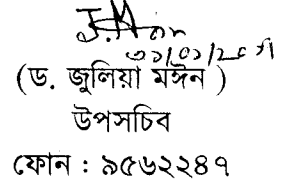 (ড. জুলিয়া মঈন )
উপসচিব
ফোন : ৯৫৬২২৪৭